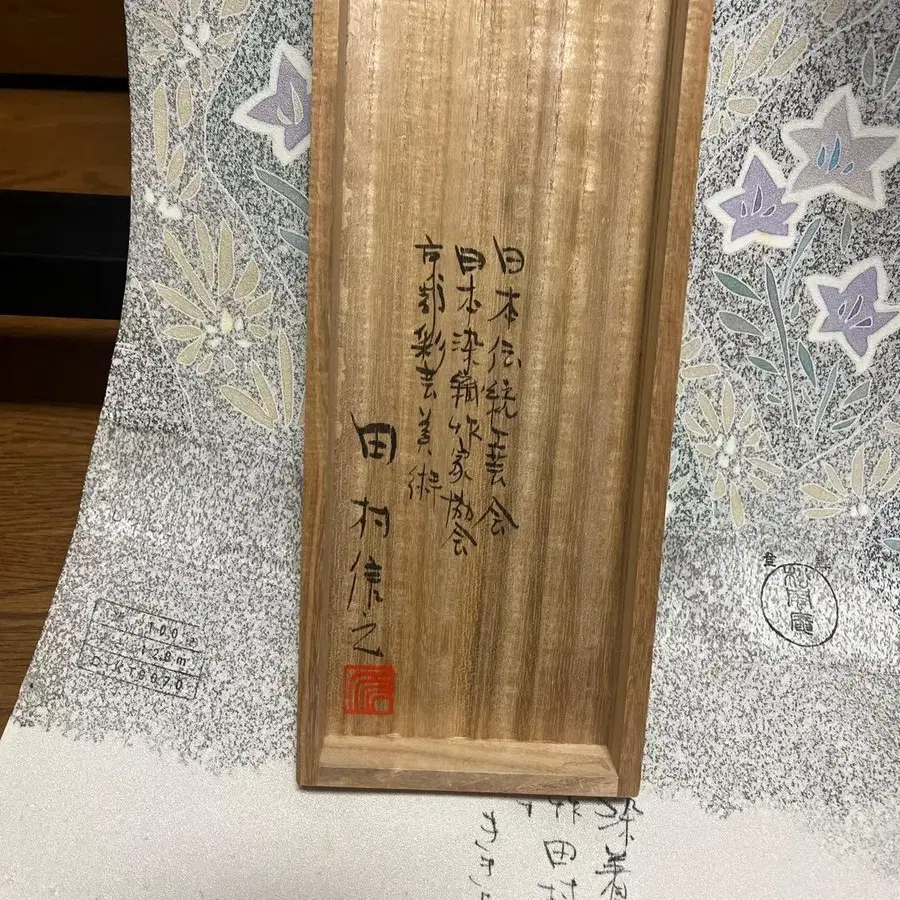 日本伝統工芸会
日本染織作家協会
京都彩芸美術
田村信之
信
染着
作田村
ききょ
100